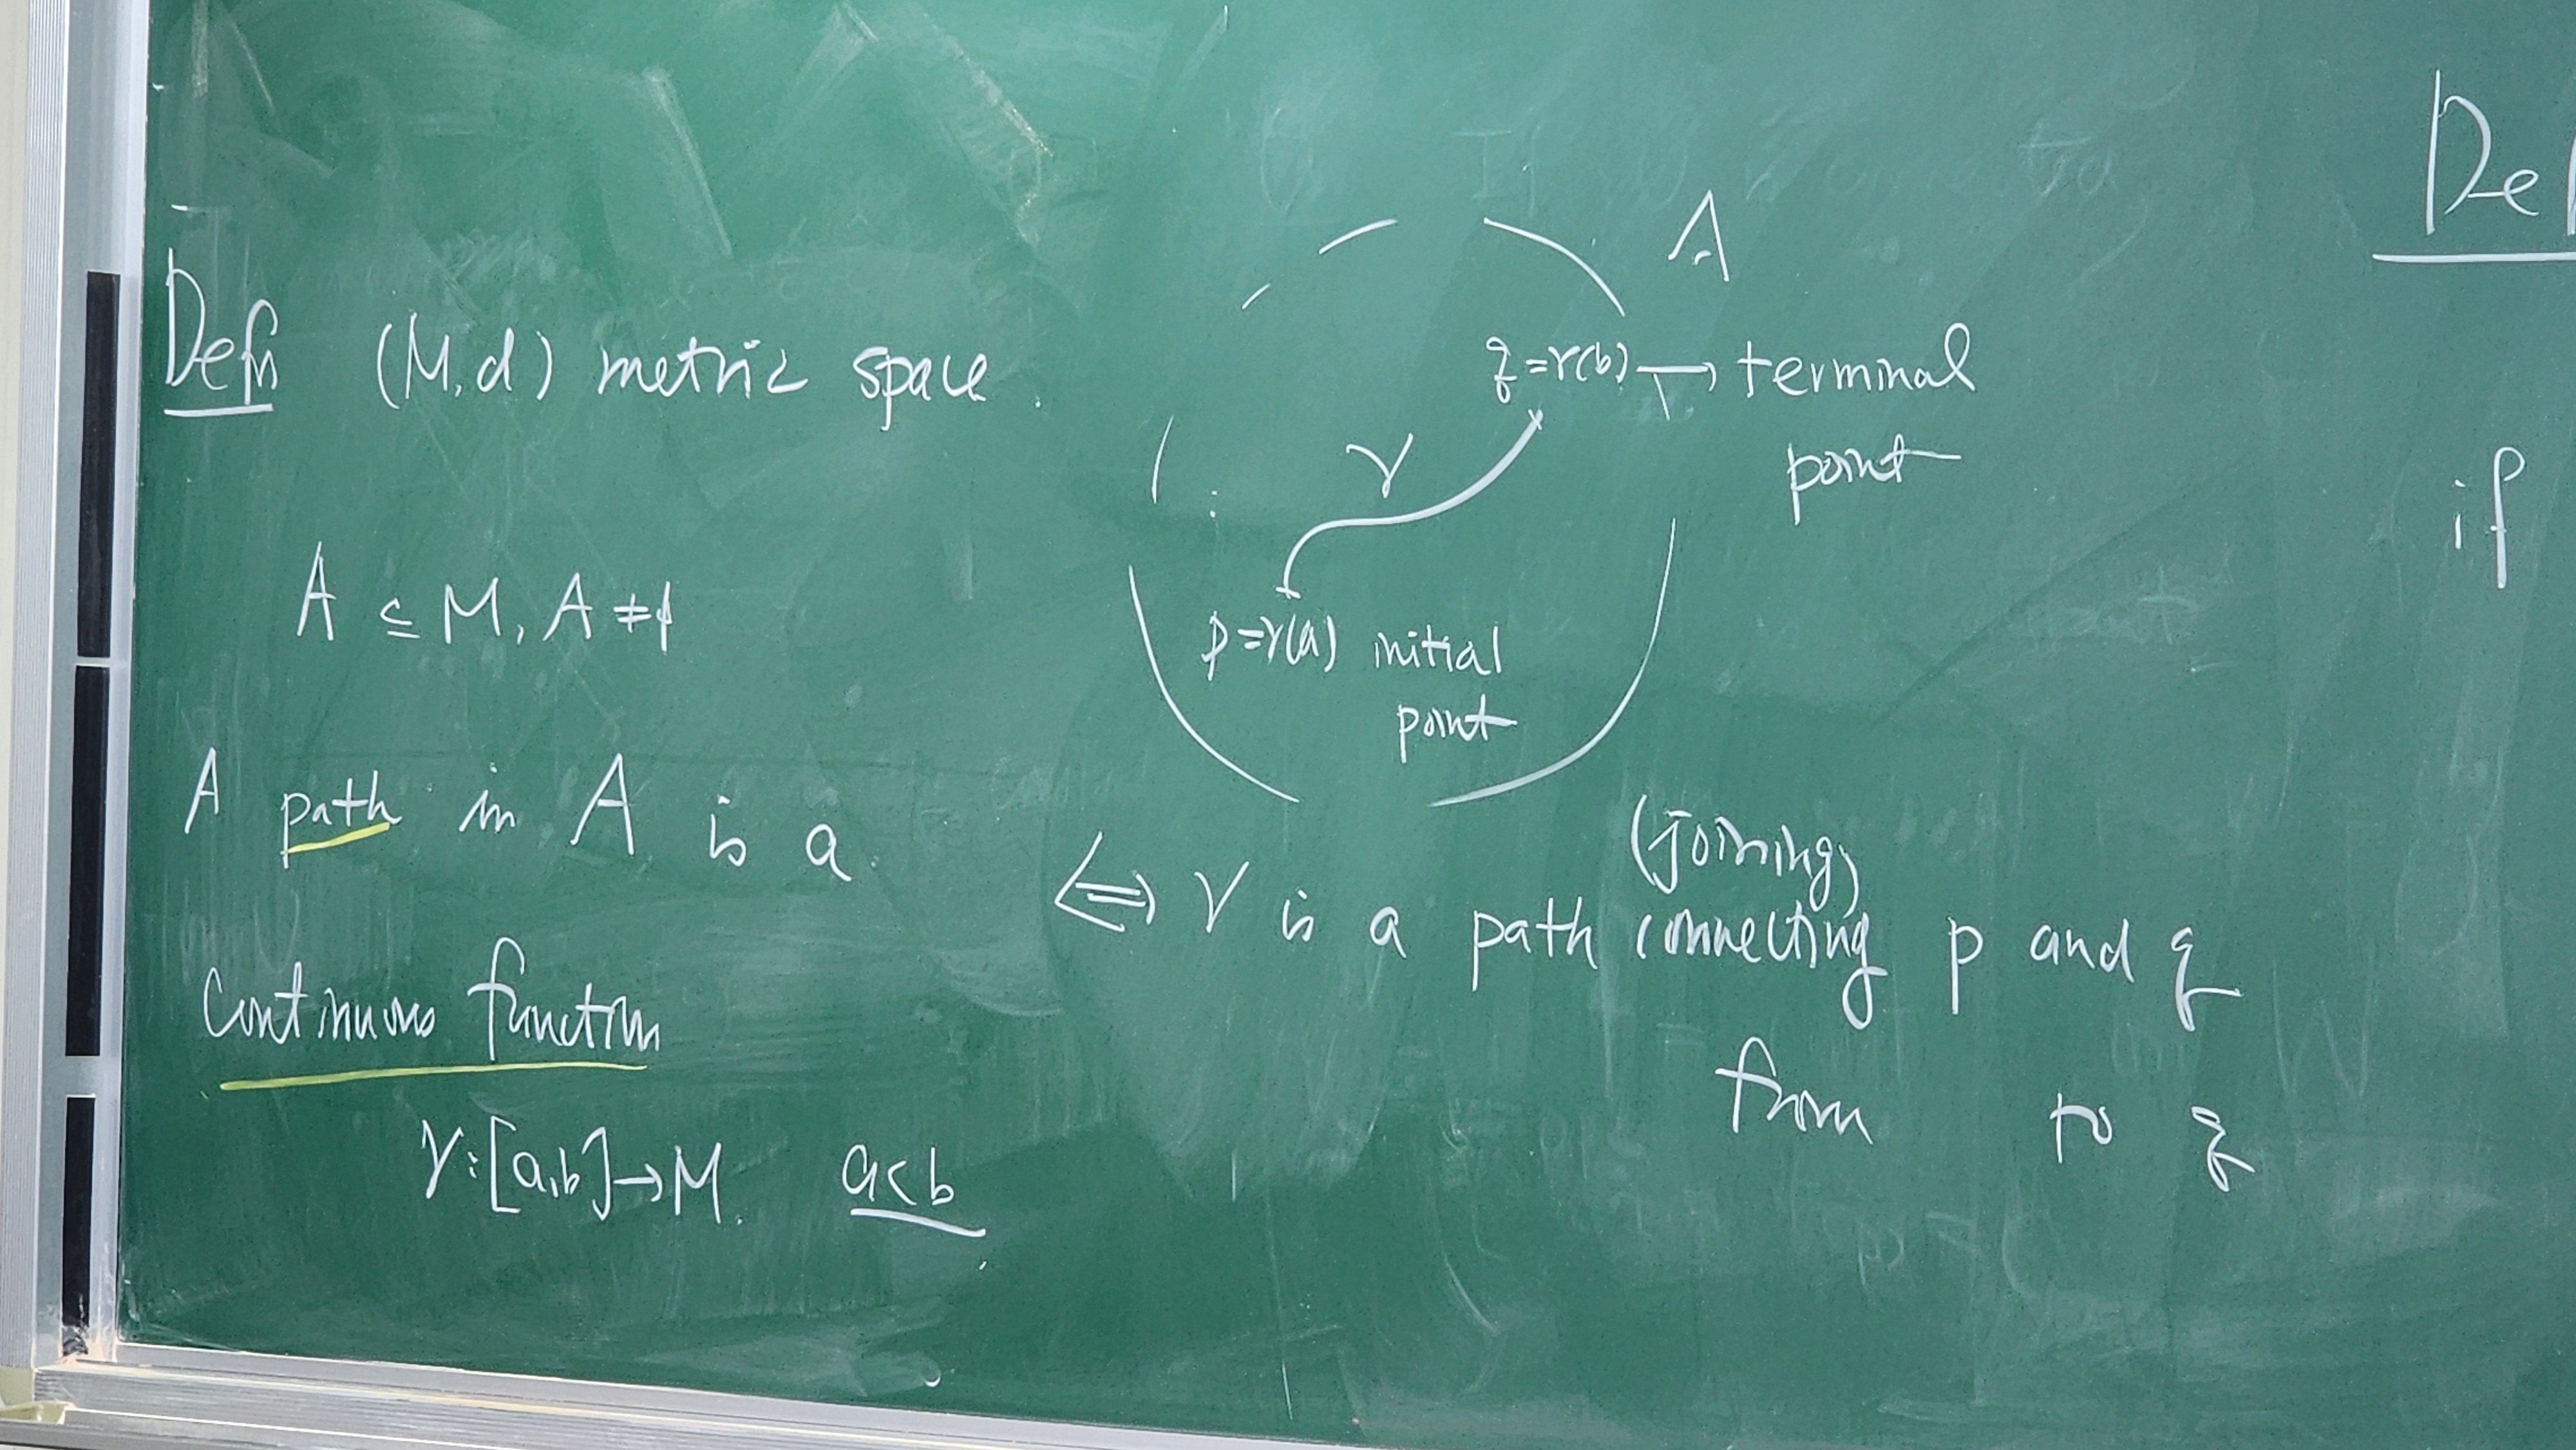 Defn (M,d) metric space.
A ⊆ M, A ≠ ϕ
A path in A is a
Continuous function
γ:[a,b]→M. a<b
A
q=γ(b) → terminal
point
γ
p=γ(a) initial
point
(joining)
⇔ γ is a path connecting p and q
from to q
De
if